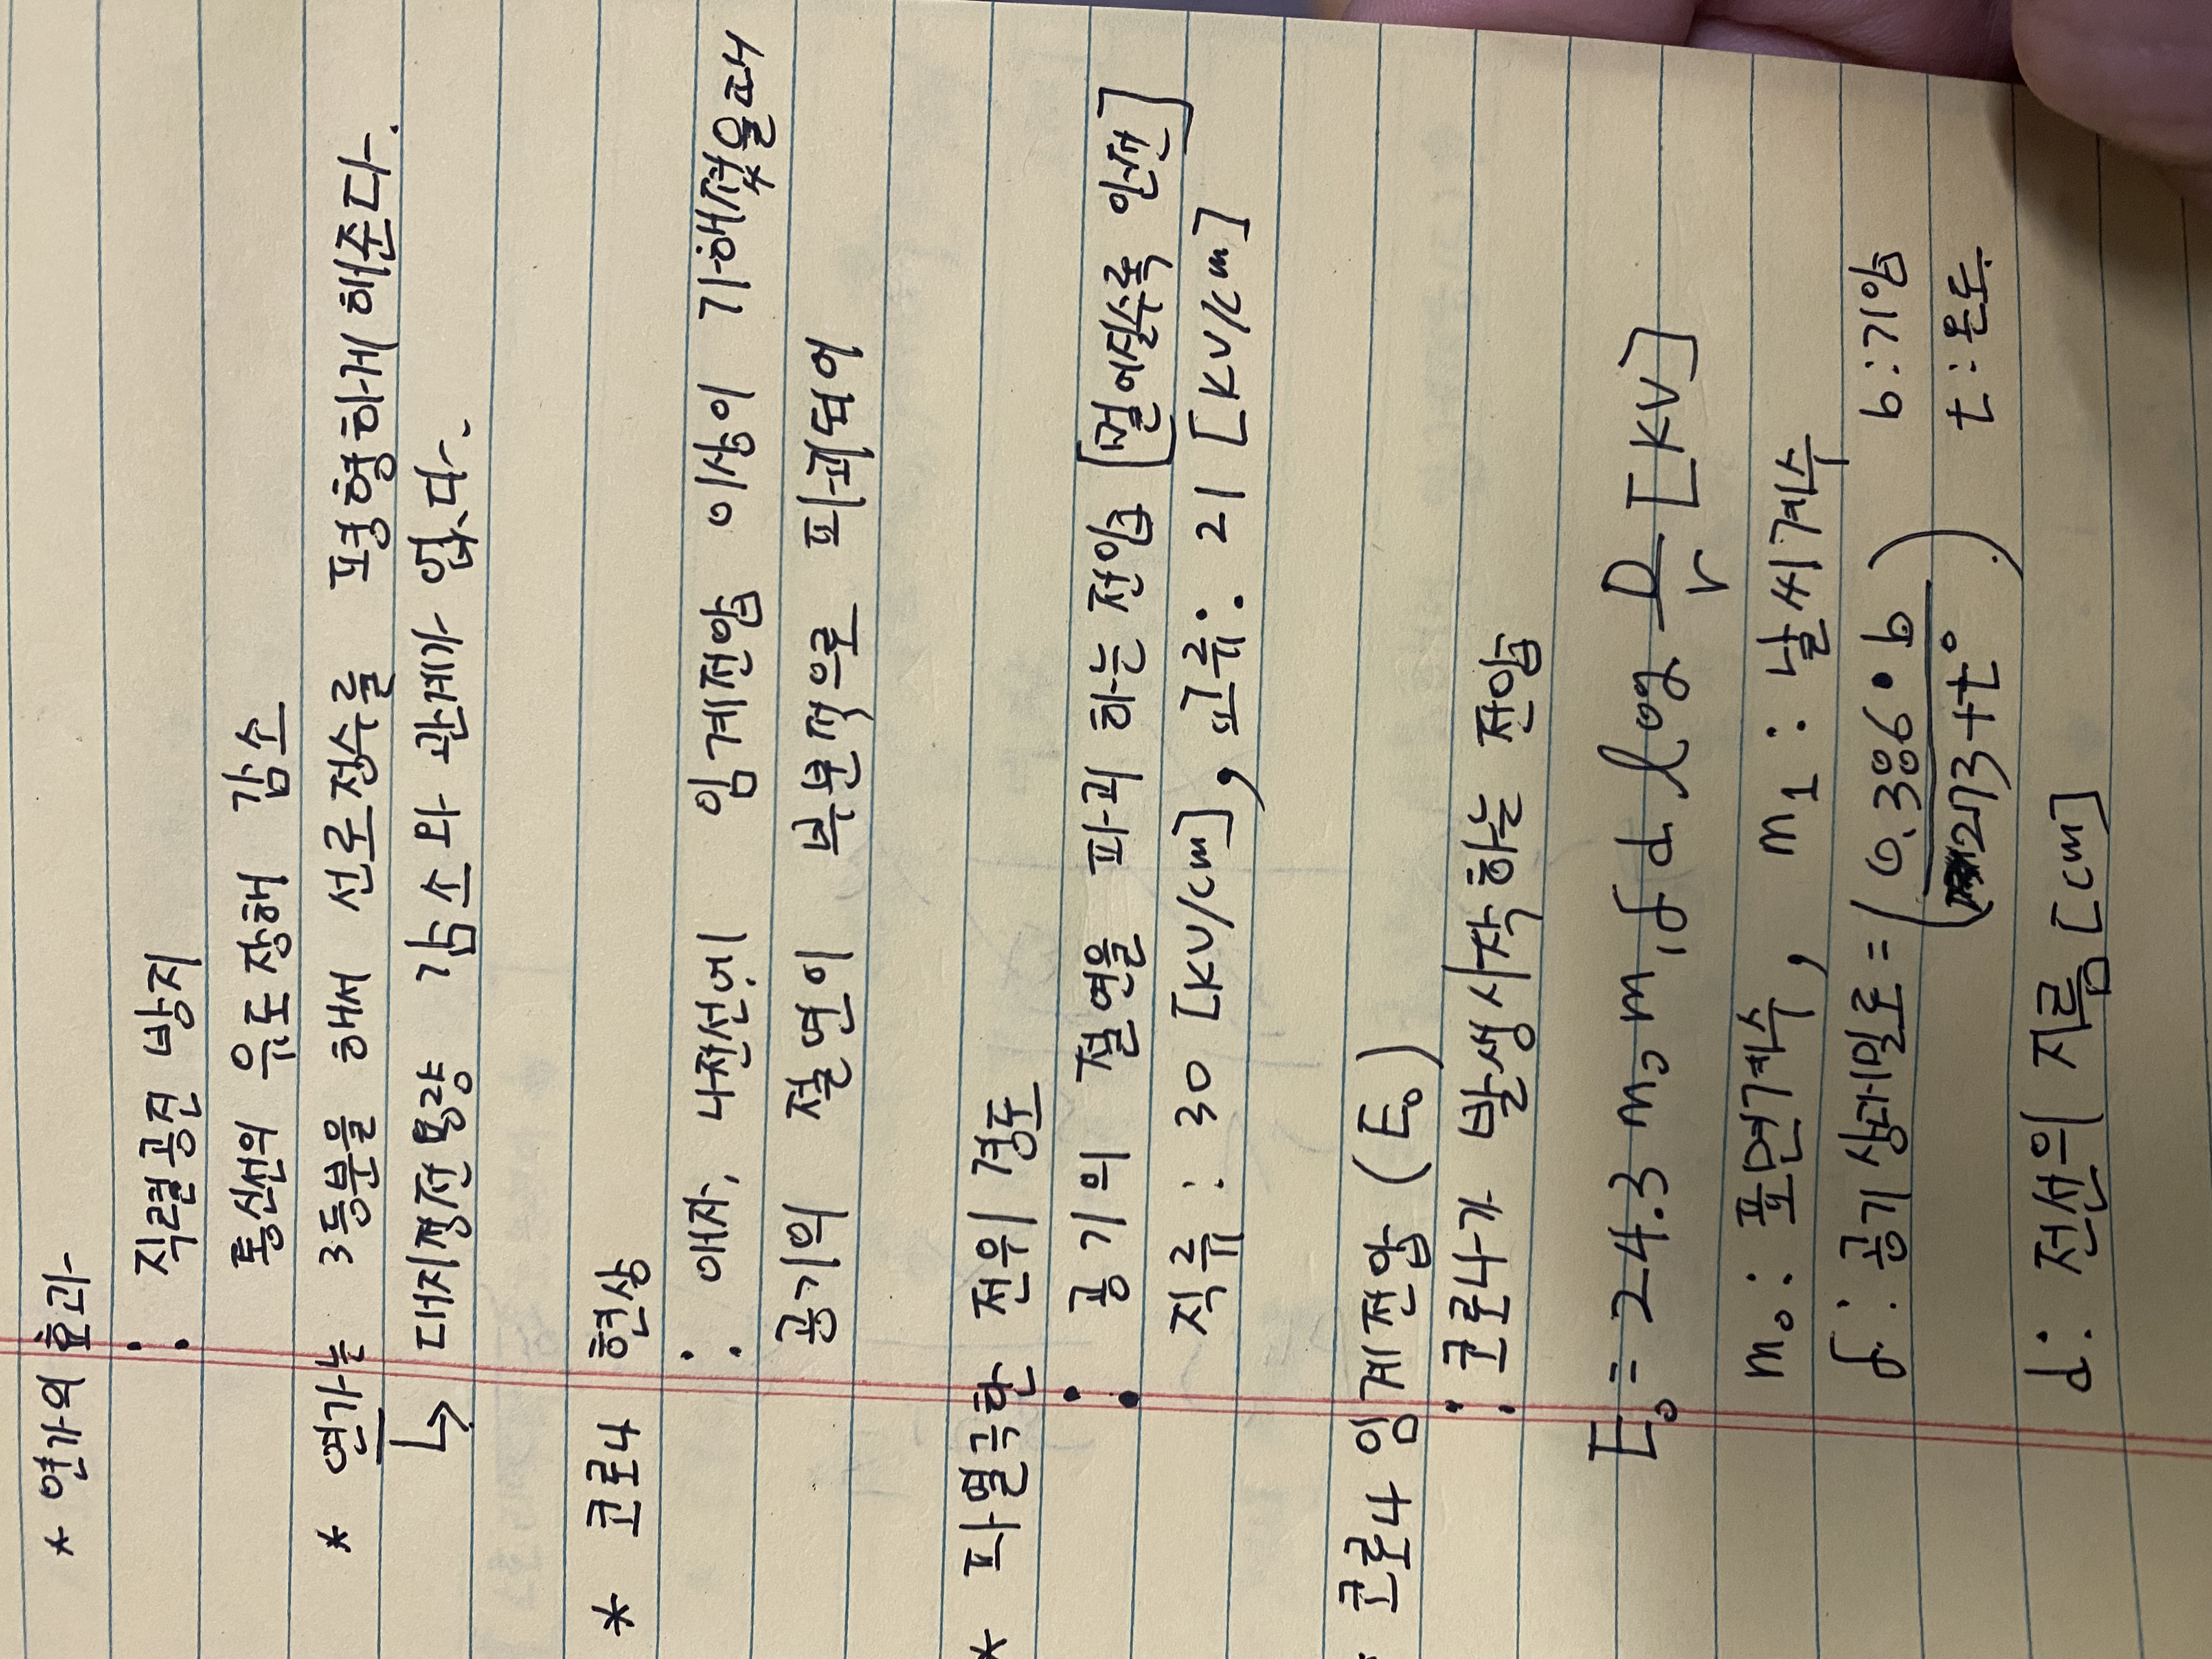 * 연가의 효과
: 직렬공진 방지
통신선의 유도장해 감소
* 연가는 3등분을 해서 선로정수를 평형하게 해준다.
↳ 대지정전용량 감소와 관계가 없다.
* 코로나 현상
: 애자, 나전선에 임계전압 이상이 가해졌을때
공기의 절연이 부분적으로 파괴되어
* 파열극한 전위 경도
: 공기의 절연을 파괴 하는 전압 [멀어질수록 안전]
직류 : 30 [KV/cm], 교류: 21 [KV/cm]
* 코로나 임계전압 (E₀)
: 코로나가 발생시작하는 전압
E₀ = 24.3 m₀ m₁ δ d log D/r [KV]
m₀: 표면계수, m₁ : 날씨계수
δ: 공기상대밀도 = (0.386・b / 273+t°) b:기압
t:온도.
d: 전선의 지름[cm]